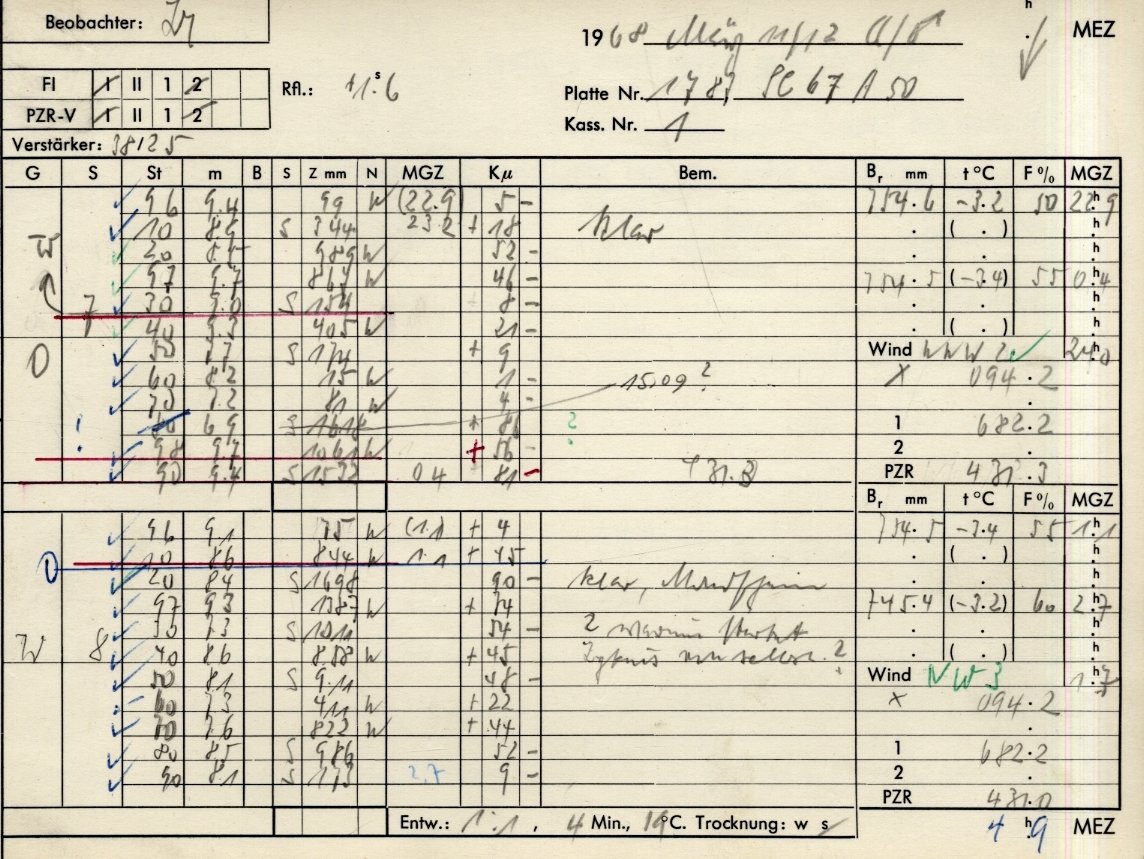 Beobachter:
1968 März 11/12
h
MEZ
FI I II 1 2
PZR-V I II 1 2
Rfl.: +1.ˢ6
Platte Nr. 1787 SC 67 A 50
Kass. Nr. 1
Verstärker: 38125
G S St m B S Z mm N MGZ Kµ Bem. Bᵣ mm t °C F % MGZ
96 9.4 99 W (22.9) 5 - 754.6 -3.2 50 22.ʰ9
10 8.9 S 344 23.2 + 18 klar . ( . ) h
20 989 W 52 - . . h
97 9.7 W 46 - 754.5 (-3.4) 55 0.ʰ4
7 30 9.0 S 154 8 - . . h
40 9.3 405 W 21 - . ( . ) h
O 50 7.7 S 174 + 9 Wind WNW 2 h
60 8.2 15 W 1 - 15.09 ? X 094.2
70 7.2 81 W 4 - .
6.9 S 1618 + 86 ? 1 682.2
98 9.7 1061 W + 56 - 2
90 9.4 S 1532 0.4 81 - 431.3 PZR 431.3
Bᵣ mm t °C F % MGZ
96 9.1 75 W (1.1) + 4 754.5 -3.4 55 1.ʰ1
O 10 8.6 844 W 1.1 + 45 . ( . ) h
20 8.4 S 1698 90 - klar, Mondschein . . h
97 9.3 1387 W + 74 745.4 (-3.2) 60 2.ʰ7
30 7.3 S 1011 54 - ? warum startet . . h
W 8 40 8.6 858 W + 45 . ( . ) h
50 8.1 S 911 48 - Wind NW 3 1.ʰ7
60 7.3 411 W + 22 X 094.2
70 7.6 822 W + 44 .
80 8.5 S 986 52 - 1 682.2
90 8.1 S 173 2.7 9 - 2
PZR 431.0
Entw.: 1:1, 4 Min., 19°C. Trocknung: w s 4 ʰ9 MEZ